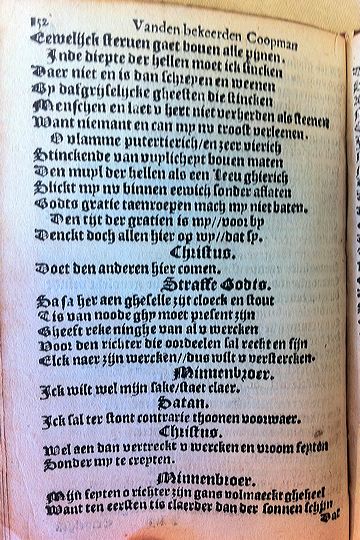 152 Vanden bekeerden Coopman
Eewelijck sterven gaet boven alle pijnen.
Inde diepte der hellen moet ick sincken
Daer niet en is dan schreyen en weenen
By dafgrijselijcke gheesten die stincken
Menschen en laet v hert niet verherden als steenen
Want niemant en can my nv troost verleenen.
O vlamme putertierich/en zeer vierich
Stinckende van vuylicheyt boven maten
Den muyl der hellen als een Leeu ghierich
Slickt my nv binnen eewich sonder aflaten
Godts gratie taenroepen mach my niet baten.
Den tijt der gratien is my//voor by
Denckt doch allen hier op wy//dat sy.
Christus.
Doet den anderen hier comen.
Straffe Godts.
Sa sa her aen gheselle zijt cloeck en stout
Tis van noode ghy moet present zijn
Gheeft rekeninghe van al v wercken
Voor den richter die oordeelen sal recht en fijn
Elck naer zijn wercken//dus wilt v verstercken.
Minnenbroer.
Ick wilt wel mijn sake/staet claer.
Satan.
Ick sal ter stont contrarie thoonen voorwaer.
Christus.
Wel aen dan vertreckt v wercken en vroom feyten
Sonder my te crepten.
Minnenbroer.
Mijn feyten o richter zijn gans volmaeckt gheheel
Want ten eersten tis claerder dan der sonnen schijn
Dat